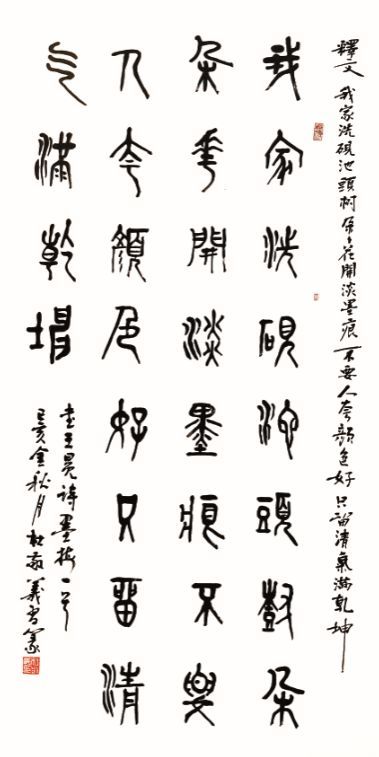 釋文 我家洗硯池頭樹 朵々花開淡墨痕 不要人夸顏色好 只留清氣滿乾坤
我家洗硯池頭樹朵
朵華開淡墨痕不要
人夸顏色好只留清
气滿乾坤
書王冕詩墨梅一首
己亥金秋月杜敬義書篆